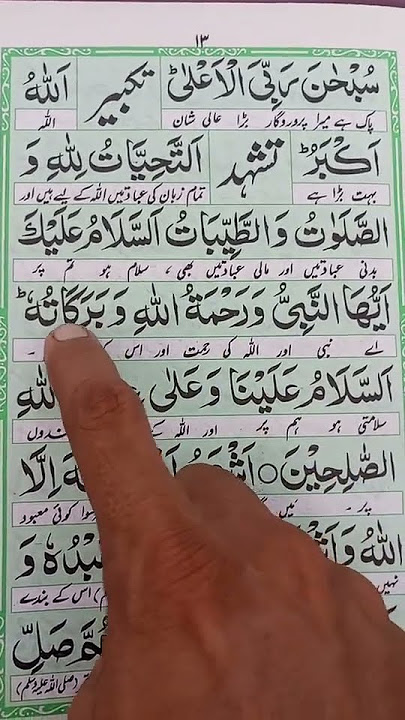 ١٣
سُبْحٰنَ رَبِّیَ الْاَعْلٰیؕ تکبیر اَللّٰهُ
پاک ہے میرا پروردگار بڑا عالی شان اللہ
اَكْبَرُؕ تشہد اَلتَّحِيَّاتُ لِلّٰهِ وَ
بہت بڑا ہے تمام زبان کی عبادتیں اللہ کے لیے ہیں اور
الصَّلَوٰتُ وَالطَّيِّبَاتُ اَلسَّلَامُ عَلَيْكَ
بدنی عبادتیں اور مالی عبادتیں بھی، سلام ہو تم پر
اَيُّهَا النَّبِیُّ وَرَحْمَةُ اللّٰهِ وَ بَرَكَاتُهٗؕ
اے نبی اور اللہ کی رحمت اور اس
اَلسَّلَامُ عَلَيْنَا وَعَلٰى اللّٰهِ
سلامتی ہو ہم پر اور اللہ کے بندوں
الصّٰلِحِيْنَ○ اَشْهَدُ اِلَّا
پر۔ سوا کوئی معبود
اللّٰهُ عَبْدُهٗ وَ
نہیں اس کے بندے
صَلِّ
(صلی اللہ علیہ وسلم)